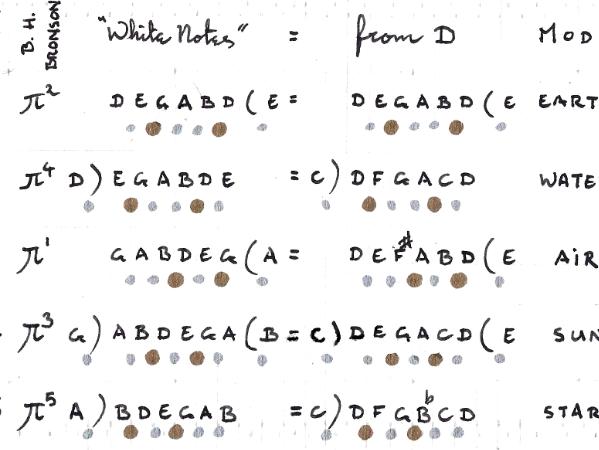 B. H. BRONSON
"White Notes" = from D MOD
π² D E G A B D ( E = D E G A B D ( E EART
π⁴ D ) E G A B D E = C ) D F G A C D WATE
π¹ G A B D E G ( A = D E F# A B D ( E AiR
π³ G ) A B D E G A ( B = C ) D E G A C D ( E SUN
π⁵ A ) B D E G A B = C ) D F G Bb C D STAR